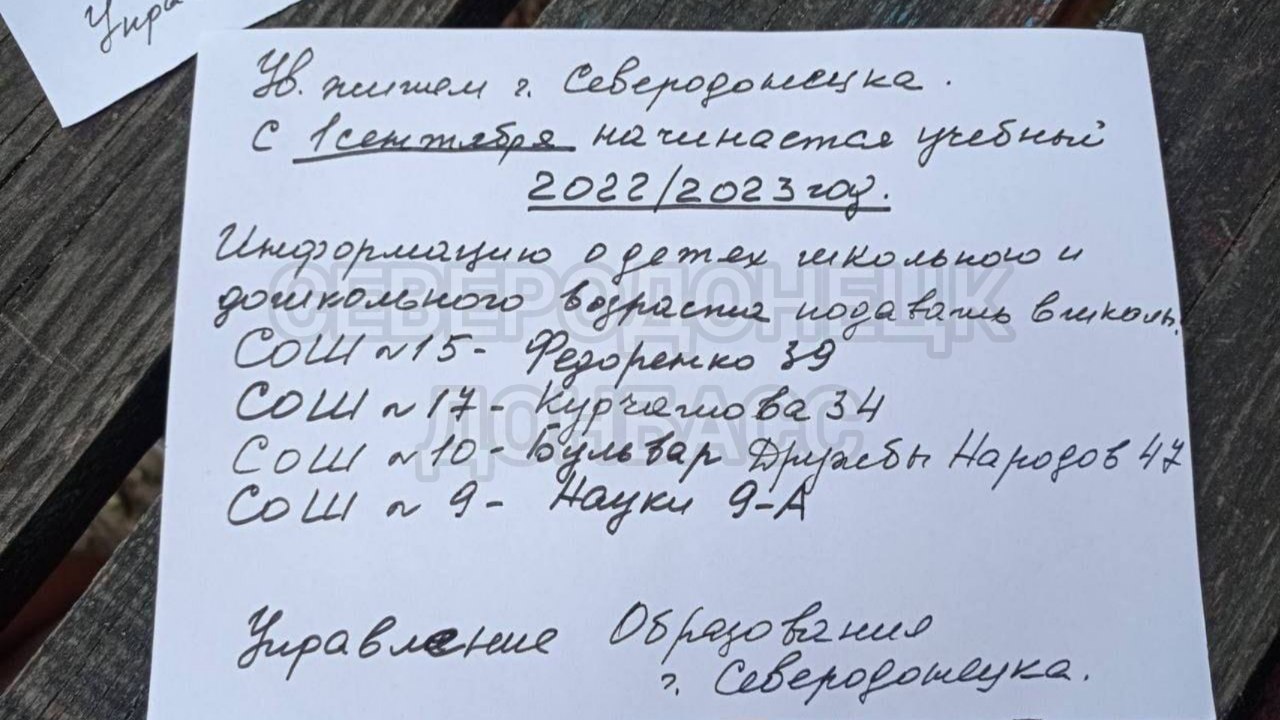 Упра
Ув. жителм г. Северодонецка.
С 1 сентября начинается учебный
2022/2023 год.
Информацию о детях школьного и
дошкольного возраста подавать в школы.
СОШ № 15 - Федоренко 39
СОШ № 17 - Курчатова 34
СОШ № 10 - Бульвар Дружбы Народов 47
СОШ № 9 - Науки 9-А
Управление Образования
г. Северодонецка.
СЕВЕРОДОНЕЦК
ДОНБАСС